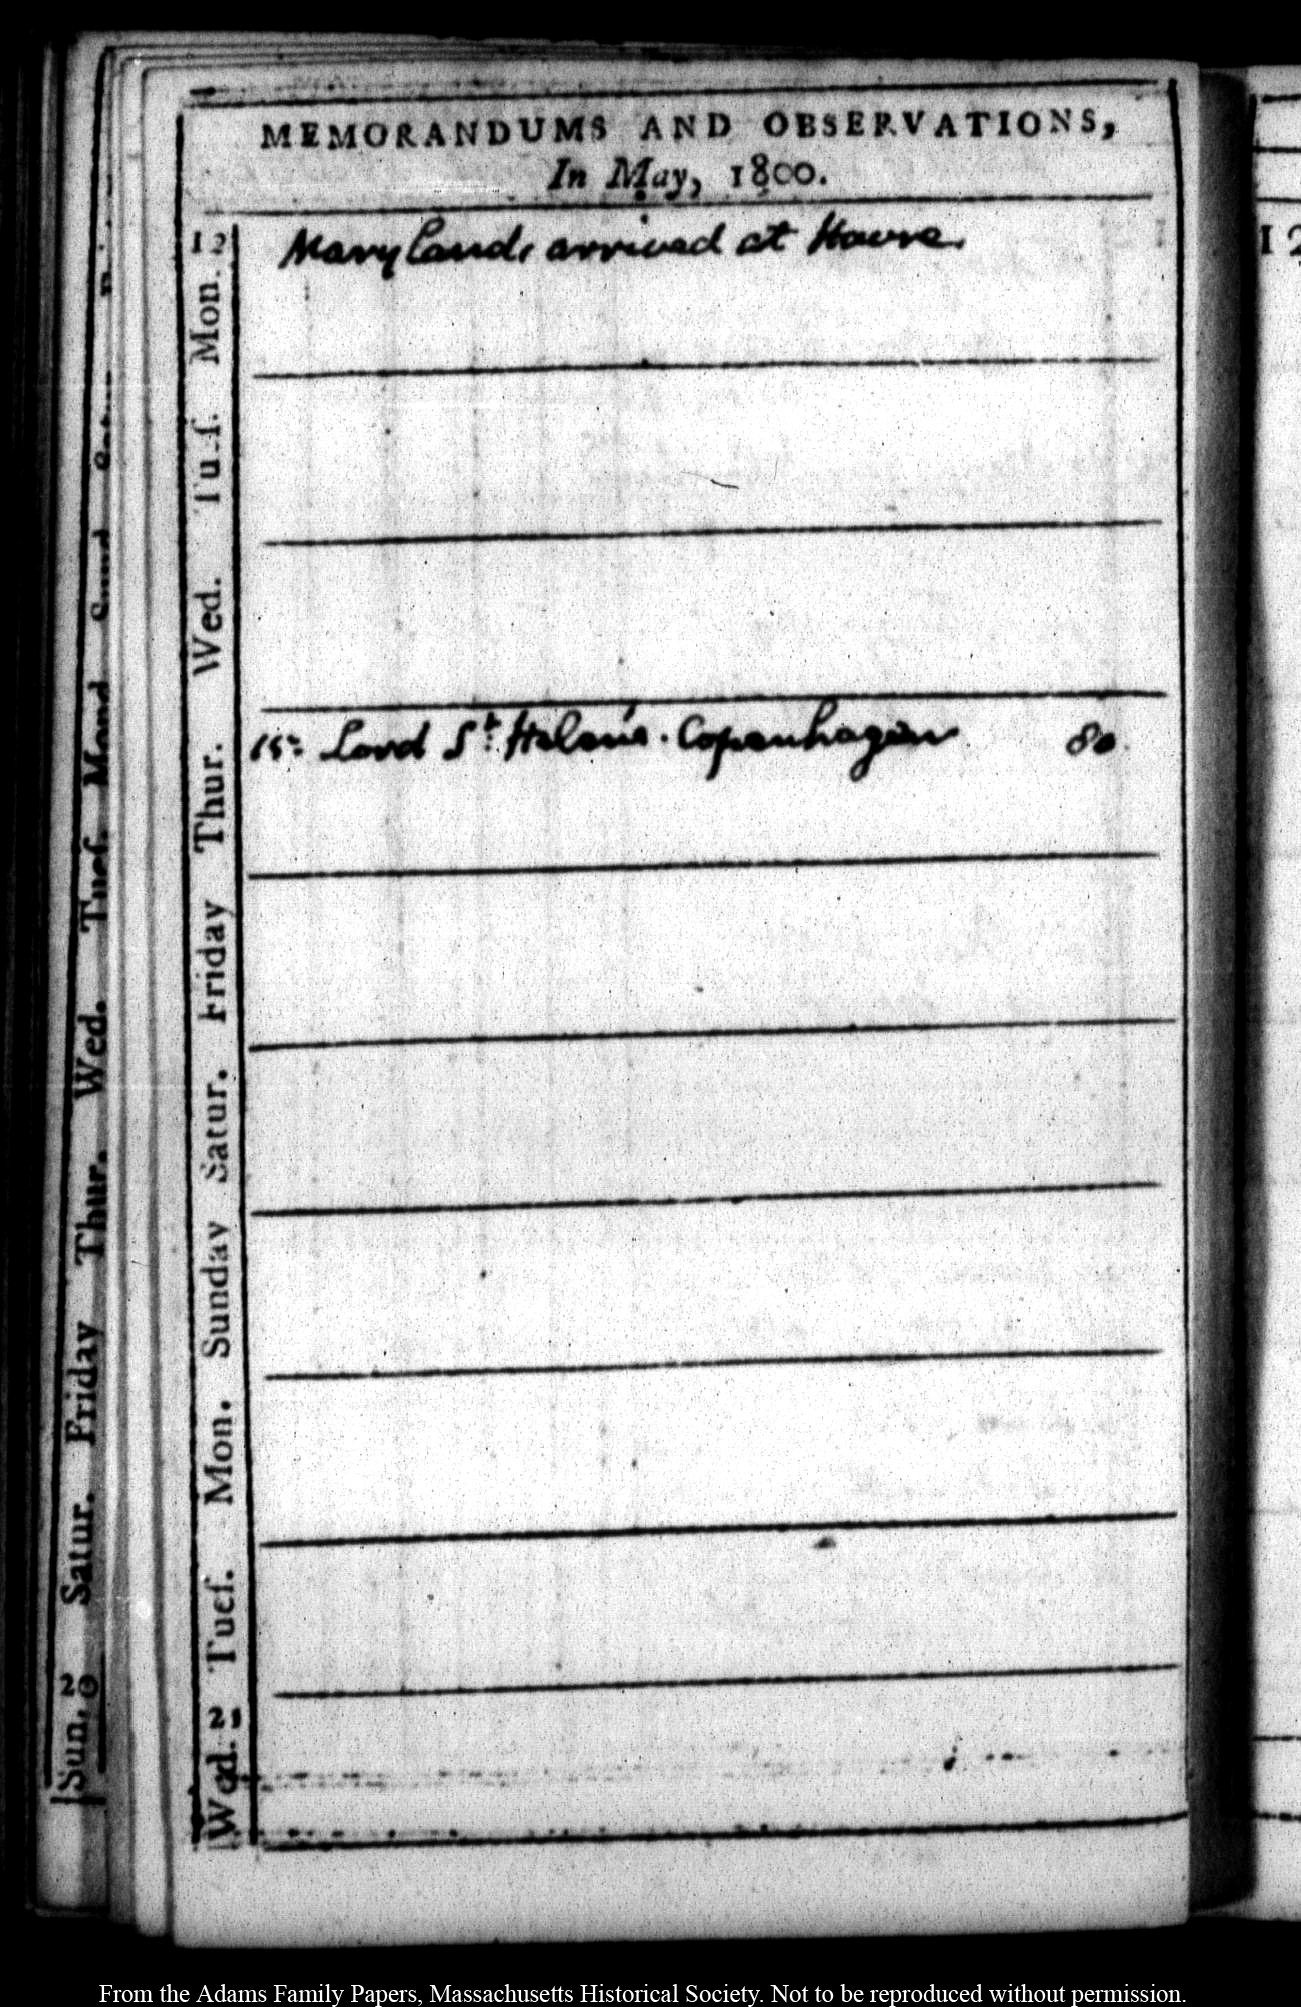 MEMORANDUMS AND OBSERVATIONS,
In May, 1800.
12
Mon.
Maryland, arrived at Havre.
Tuſ.
Wed.
Thur.
15. Lord St. Helen's. Copenhagen 80.
Friday
Satur.
Sunday
Mon.
Tueſ.
21
Wed.
Mond
Tueſ.
Wed.
Thur.
Friday
Satur.
20
Sun.
12
From the Adams Family Papers, Massachusetts Historical Society. Not to be reproduced without permission.